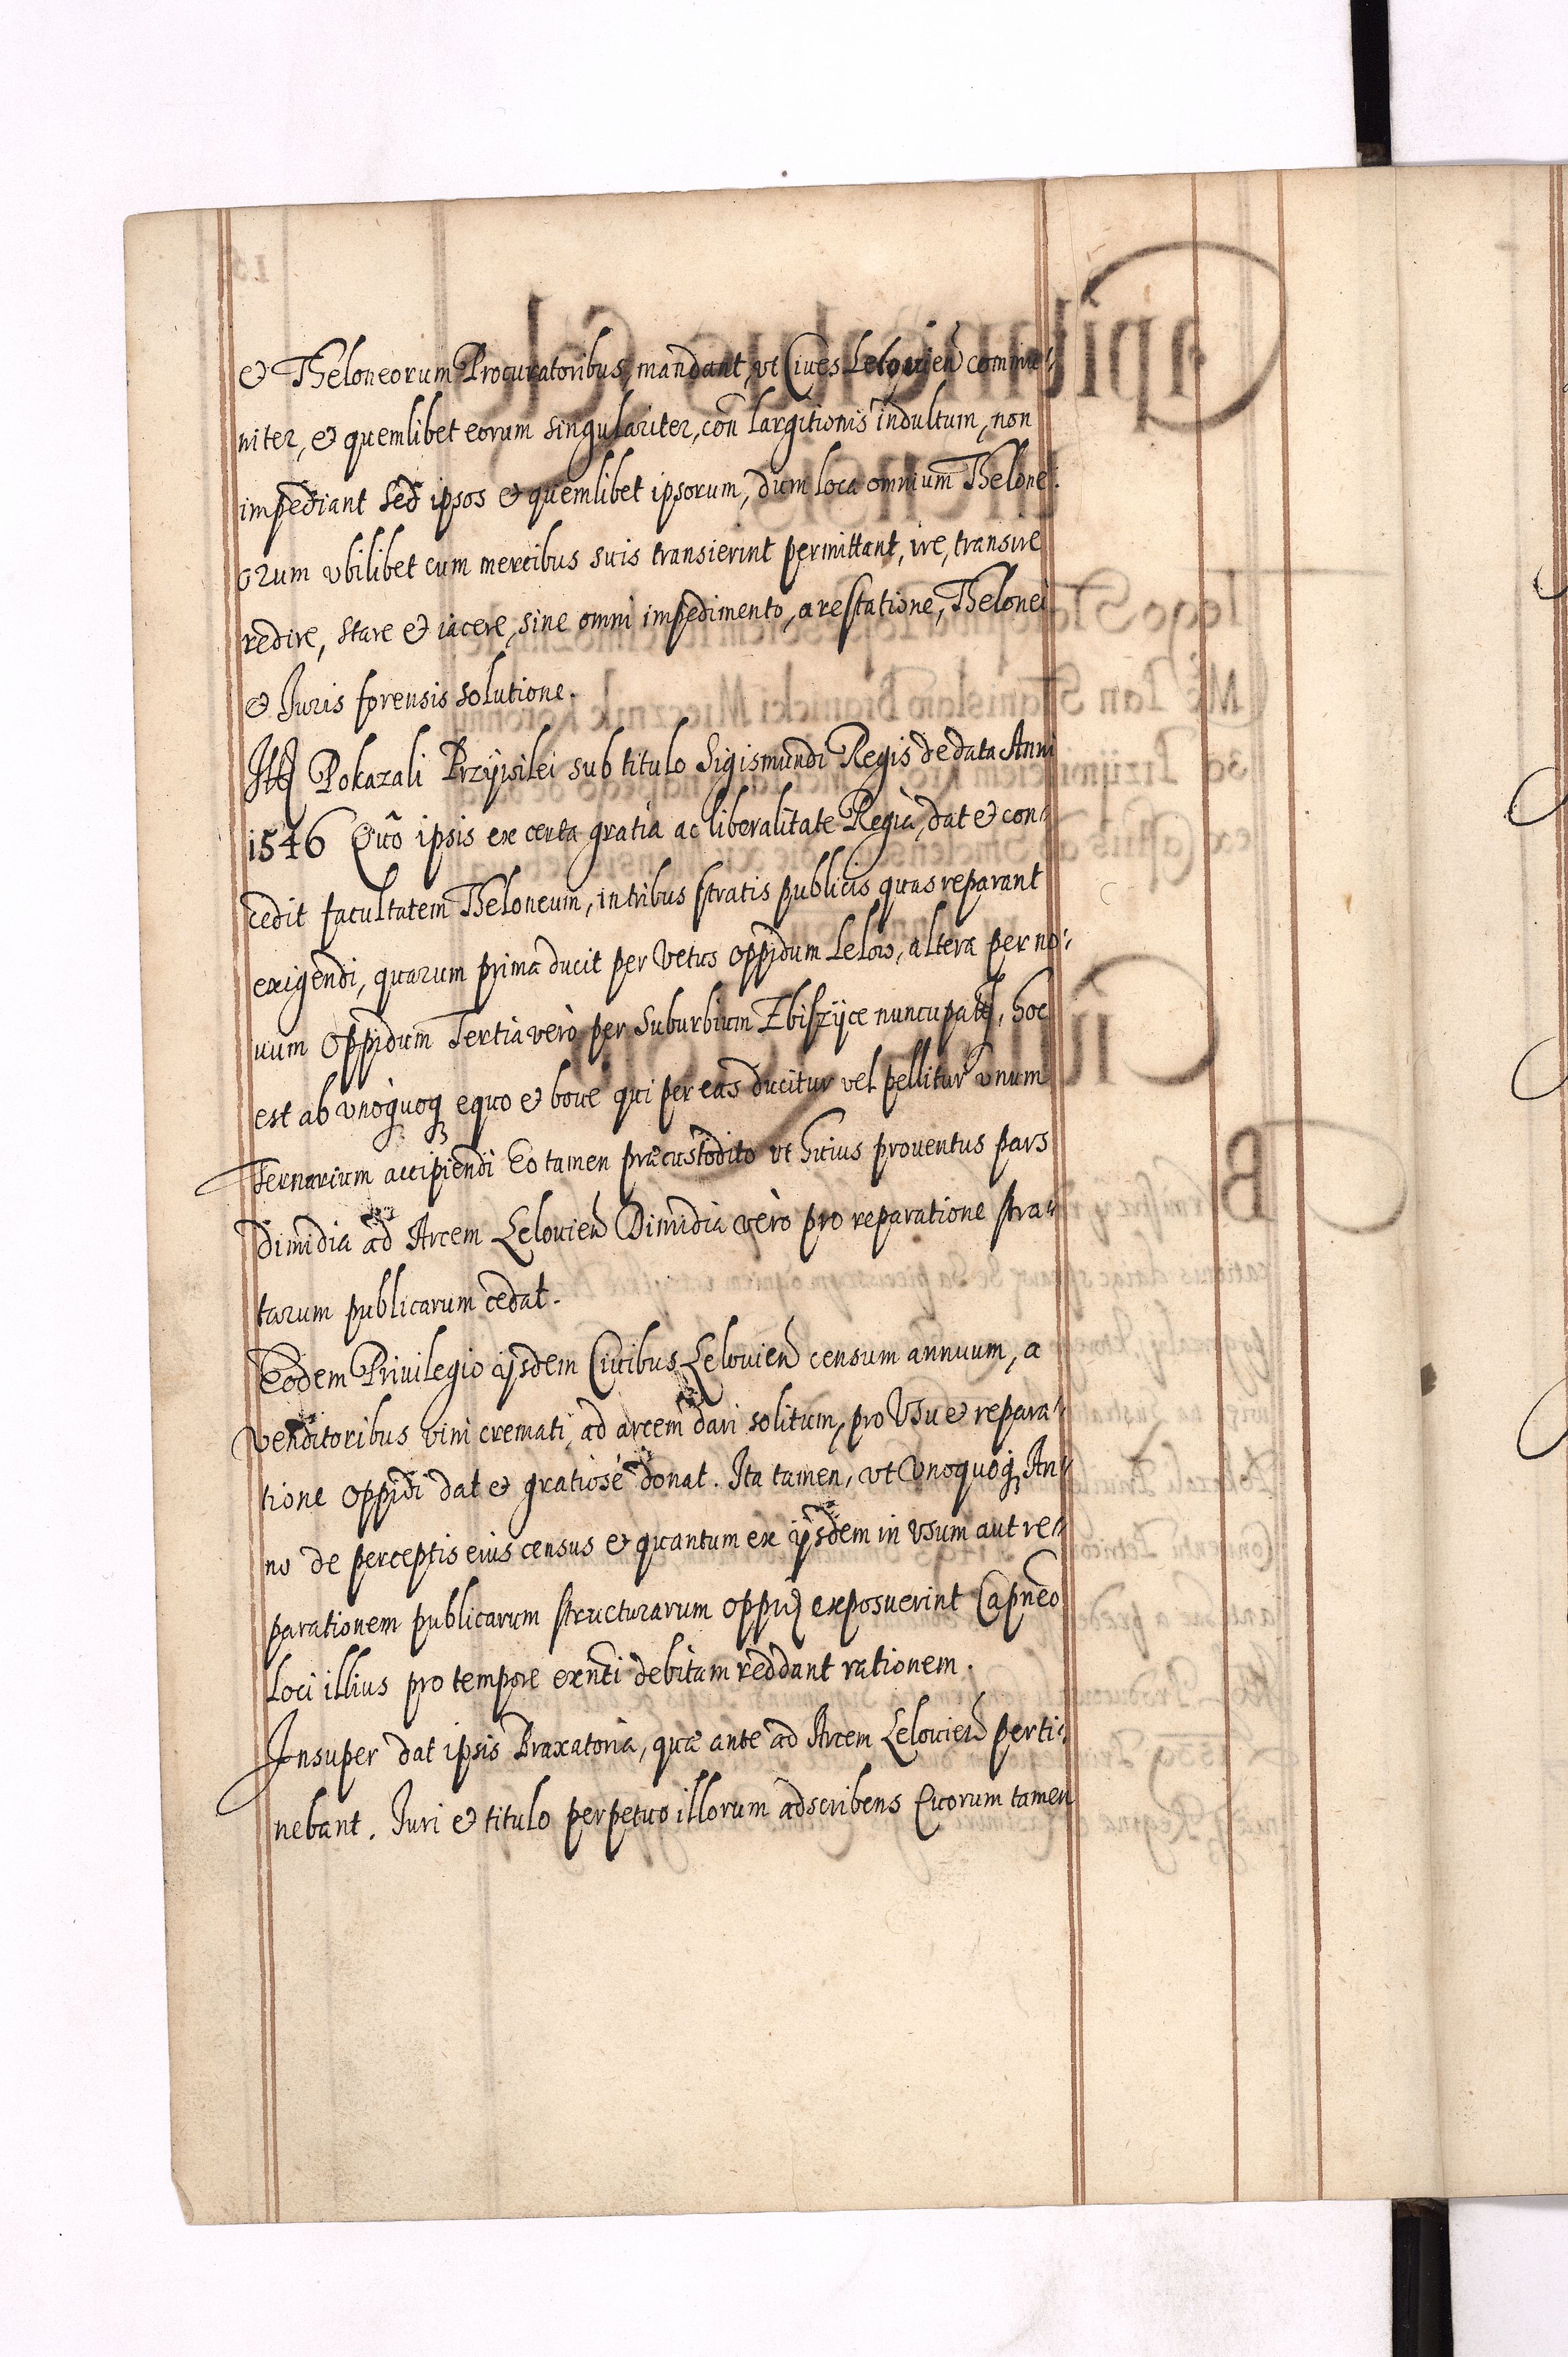 & Theloneorum Procuratoribus, mandant, vt Ciues Lelouien commu-
niter, & quemlibet eorum singulariter, con largitionis indultum, non
impediant sed ipsos & quemlibet ipsorum, dum loca omnium Thelone-
orum vbilibet cum mercibus suis transierint permittant, ire, transire
redire, stare & iacere, sine omni impedimento, arestatione, Thelonei
& Iuris forensis solutione.
Itt Pokazali Przÿwilei sub titulo Sigismundi Regis de data Anni
1546 Quô ipsis ex certa gratia ac liberalitate Regia, dat & con-
cedit facultatem Theloneum, in tribus stratis publicis quas reparant
exigendi, quarum prima ducit per Vetus oppidum Lelow, altera per no-
uum oppidum Tertia verò per Suburbium Zbiszÿce nuncupat, hoc
est ab vnoquoq equo & boue qui per eas ducitur vel pellitur vnum
Ternarium accipiendi Eo tamen præcustodito vt huius prouentus pars
Dimidia ad Arcem Lelouien Dimidia verò pro reparatione stra-
tarum publicarum cedat.
Eodem Priuilegio ijsdem Ciuibus Lelouien censum annuum, a
venditoribus vini cremati, ad arcem dari solitum, pro Vsu & repara-
tione oppidi dat & gratiosè donat. Ita tamen, vt Vnoquoq An-
no de perceptis eius census & quantum ex ijsdem in Vsum aut re-
parationem publicarum structurarum oppid exposuerint Capneo
loci illius pro tempore exnti debitam reddant rationem.
Insuper dat ipsis Braxatoria, quæ ante ad Arcem Lelouien perti-
nebant. Iuri & titulo perpetuo illorum adscribens Quorum tamen